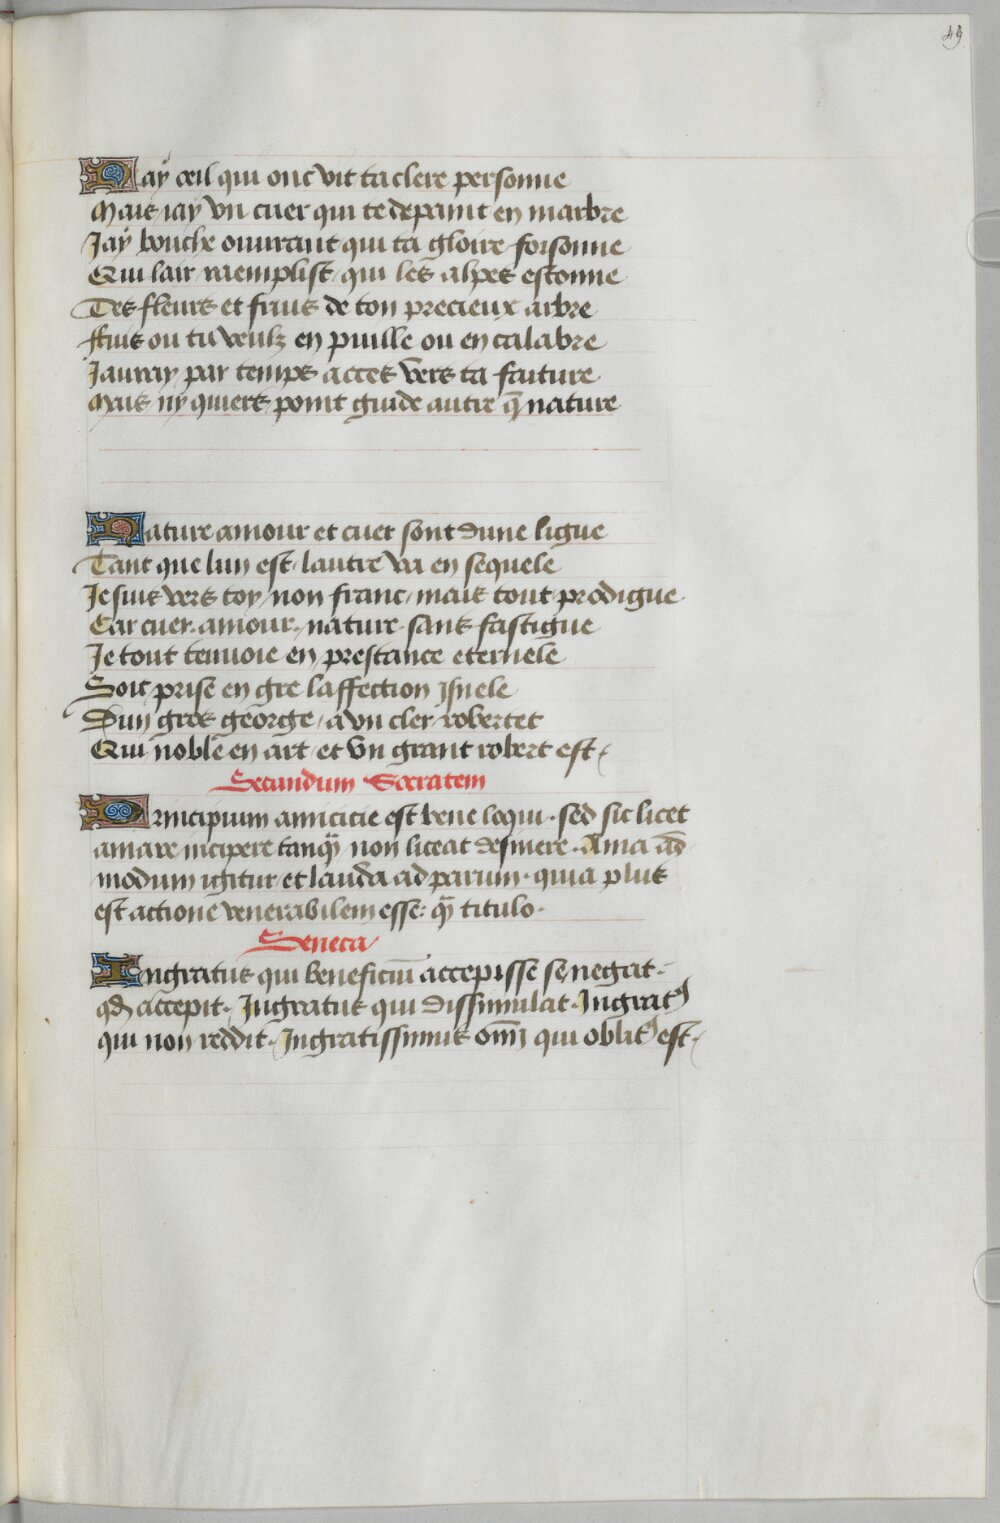 49
Nay oeil qui onc vit ta clere personne
Mais iay vn cuer qui te depaint en marbre
Jay bouche ouurant qui ta gloire forsonne
Qui lair raemplist qui les alpes estonne
Des fleurs et fruis de ton precieux arbre
ffuis ou tu veulz en puille ou en calabre
Jauray par temps acces vers ta faiture
Mais ny quiers point guide autre q̃ nature
Nature amour et cuer sont dune ligue
Tant que lun est lautre va en sequele
Je suis vers toy non franc mais tout prodigue
Car cuer amour nature sans fastigue
Je tout tenuoie en prestance eternele
Soit prise en gre laffection jsnele
Dun gros george a vn cler robertet
Qui noble en art et vn grant robert est
Secundum Socratem
Principium amicicie est bene loqui . sed sic licet
amare incipere tanq̃ non liceat desinere . Ama ad
modum igitur et lauda ad parum . quia plus
est actione venerabilem esse: q̃ titulo .
Seneca
Ingratus qui beneficiū accepisse se negat .
qd accepit . Jngratus qui dissimulat . Jngratꝰ
qui non reddit . Jngratissimus omī qui oblitꝰ est .